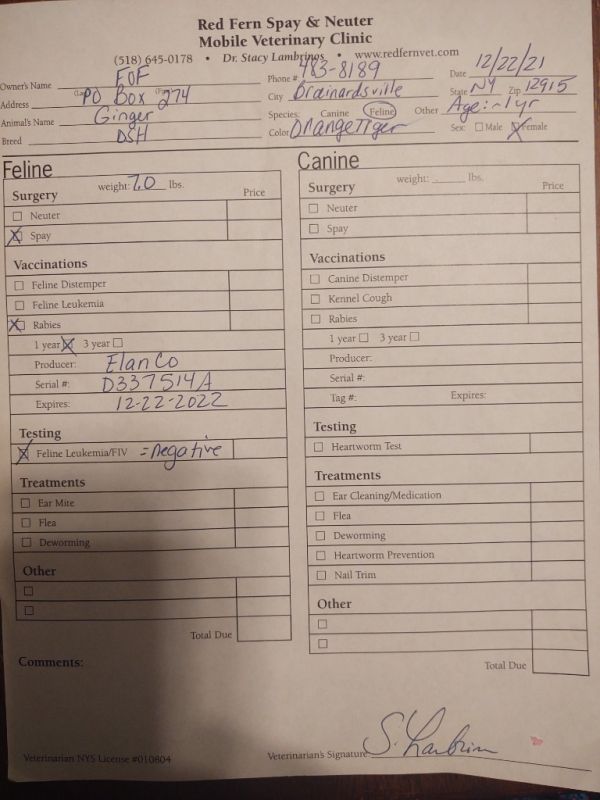 Red Fern Spay & Neuter
Mobile Veterinary Clinic
(518) 645-0178 • Dr. Stacy Lambrinos • www.redfernvet.com
Owner's Name FOF Phone # 483-8189 Date 12/22/21
Address PO Box 274 City Brainardsville State NY Zip 12915
Animal's Name Ginger Species: Canine Feline Other Age: ~1yr
Breed DSH Color Orange Tiger Sex: Male Female
Feline
weight: 7.0 lbs.
Surgery Price
Neuter
Spay
Vaccinations
Feline Distemper
Feline Leukemia
Rabies
1 year 3 year
Producer: Elanco
Serial #: D337514A
Expires: 12-22-2022
Testing
Feline Leukemia/FIV = negative
Treatments
Ear Mite
Flea
Deworming
Other
Total Due
Comments:
Canine
weight: lbs.
Surgery Price
Neuter
Spay
Vaccinations
Canine Distemper
Kennel Cough
Rabies
1 year 3 year
Producer:
Serial #:
Tag #: Expires:
Testing
Heartworm Test
Treatments
Ear Cleaning/Medication
Flea
Deworming
Heartworm Prevention
Nail Trim
Other
Total Due
Veterinarian NYS License #010804
Veterinarian's Signature S. Lambrin